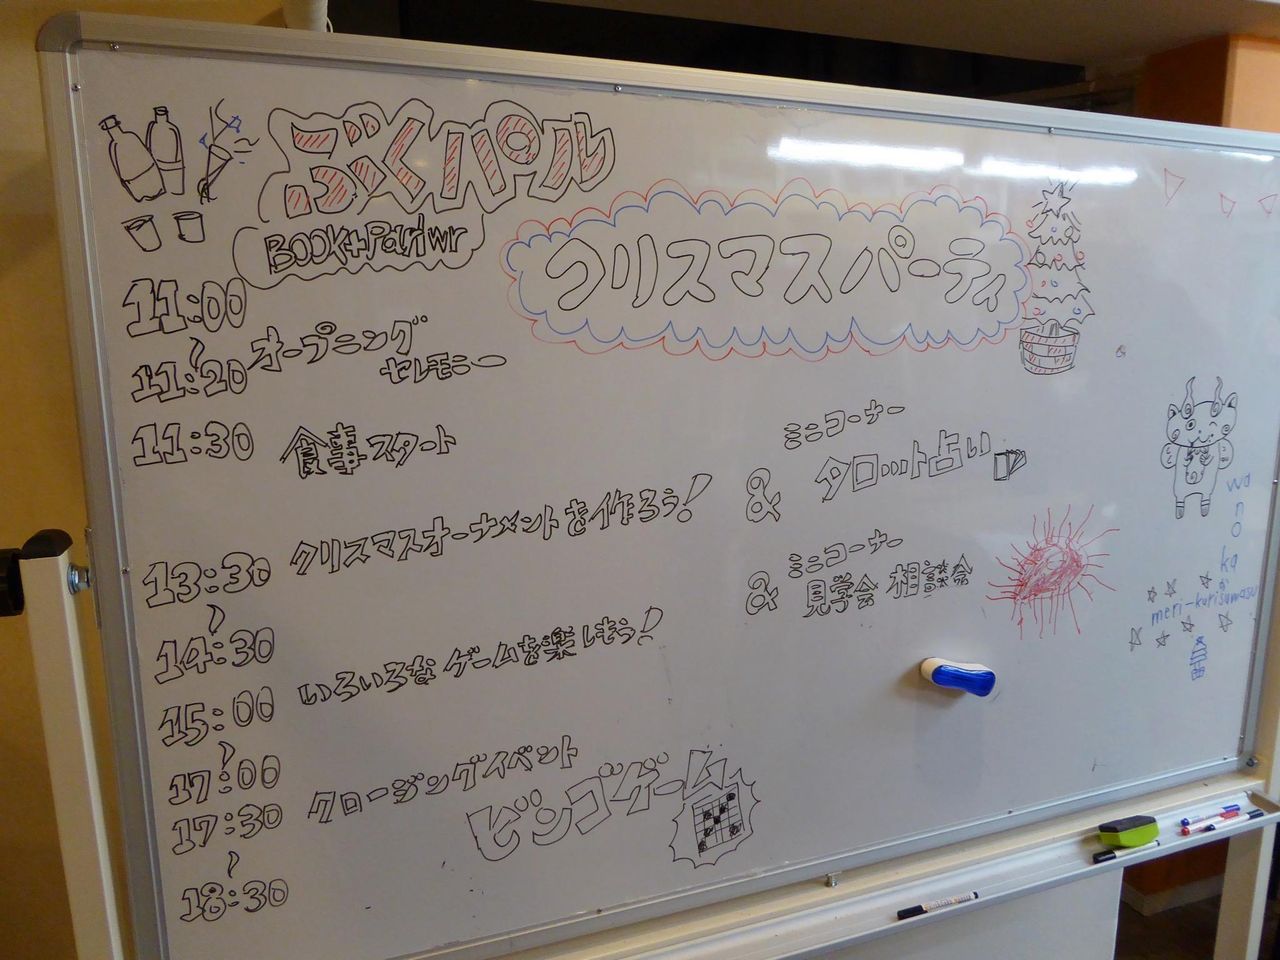 ぶくパル
BOOK+Pariwr
クリスマスパーティ
11:00
〜
11:20
オープニング
セレモニー
11:30 食事スタート
ミニコーナー
& タロット占い
13:30
〜
14:30
クリスマスオーナメントを作ろう!
ミニコーナー
& 見学会 相談会
15:00
〜
17:00
いろいろなゲームを楽しもう!
17:30
〜
18:30
クロージングイベント
ビンゴゲーム
wa
n
o
ka
か
meri-kurisumasu